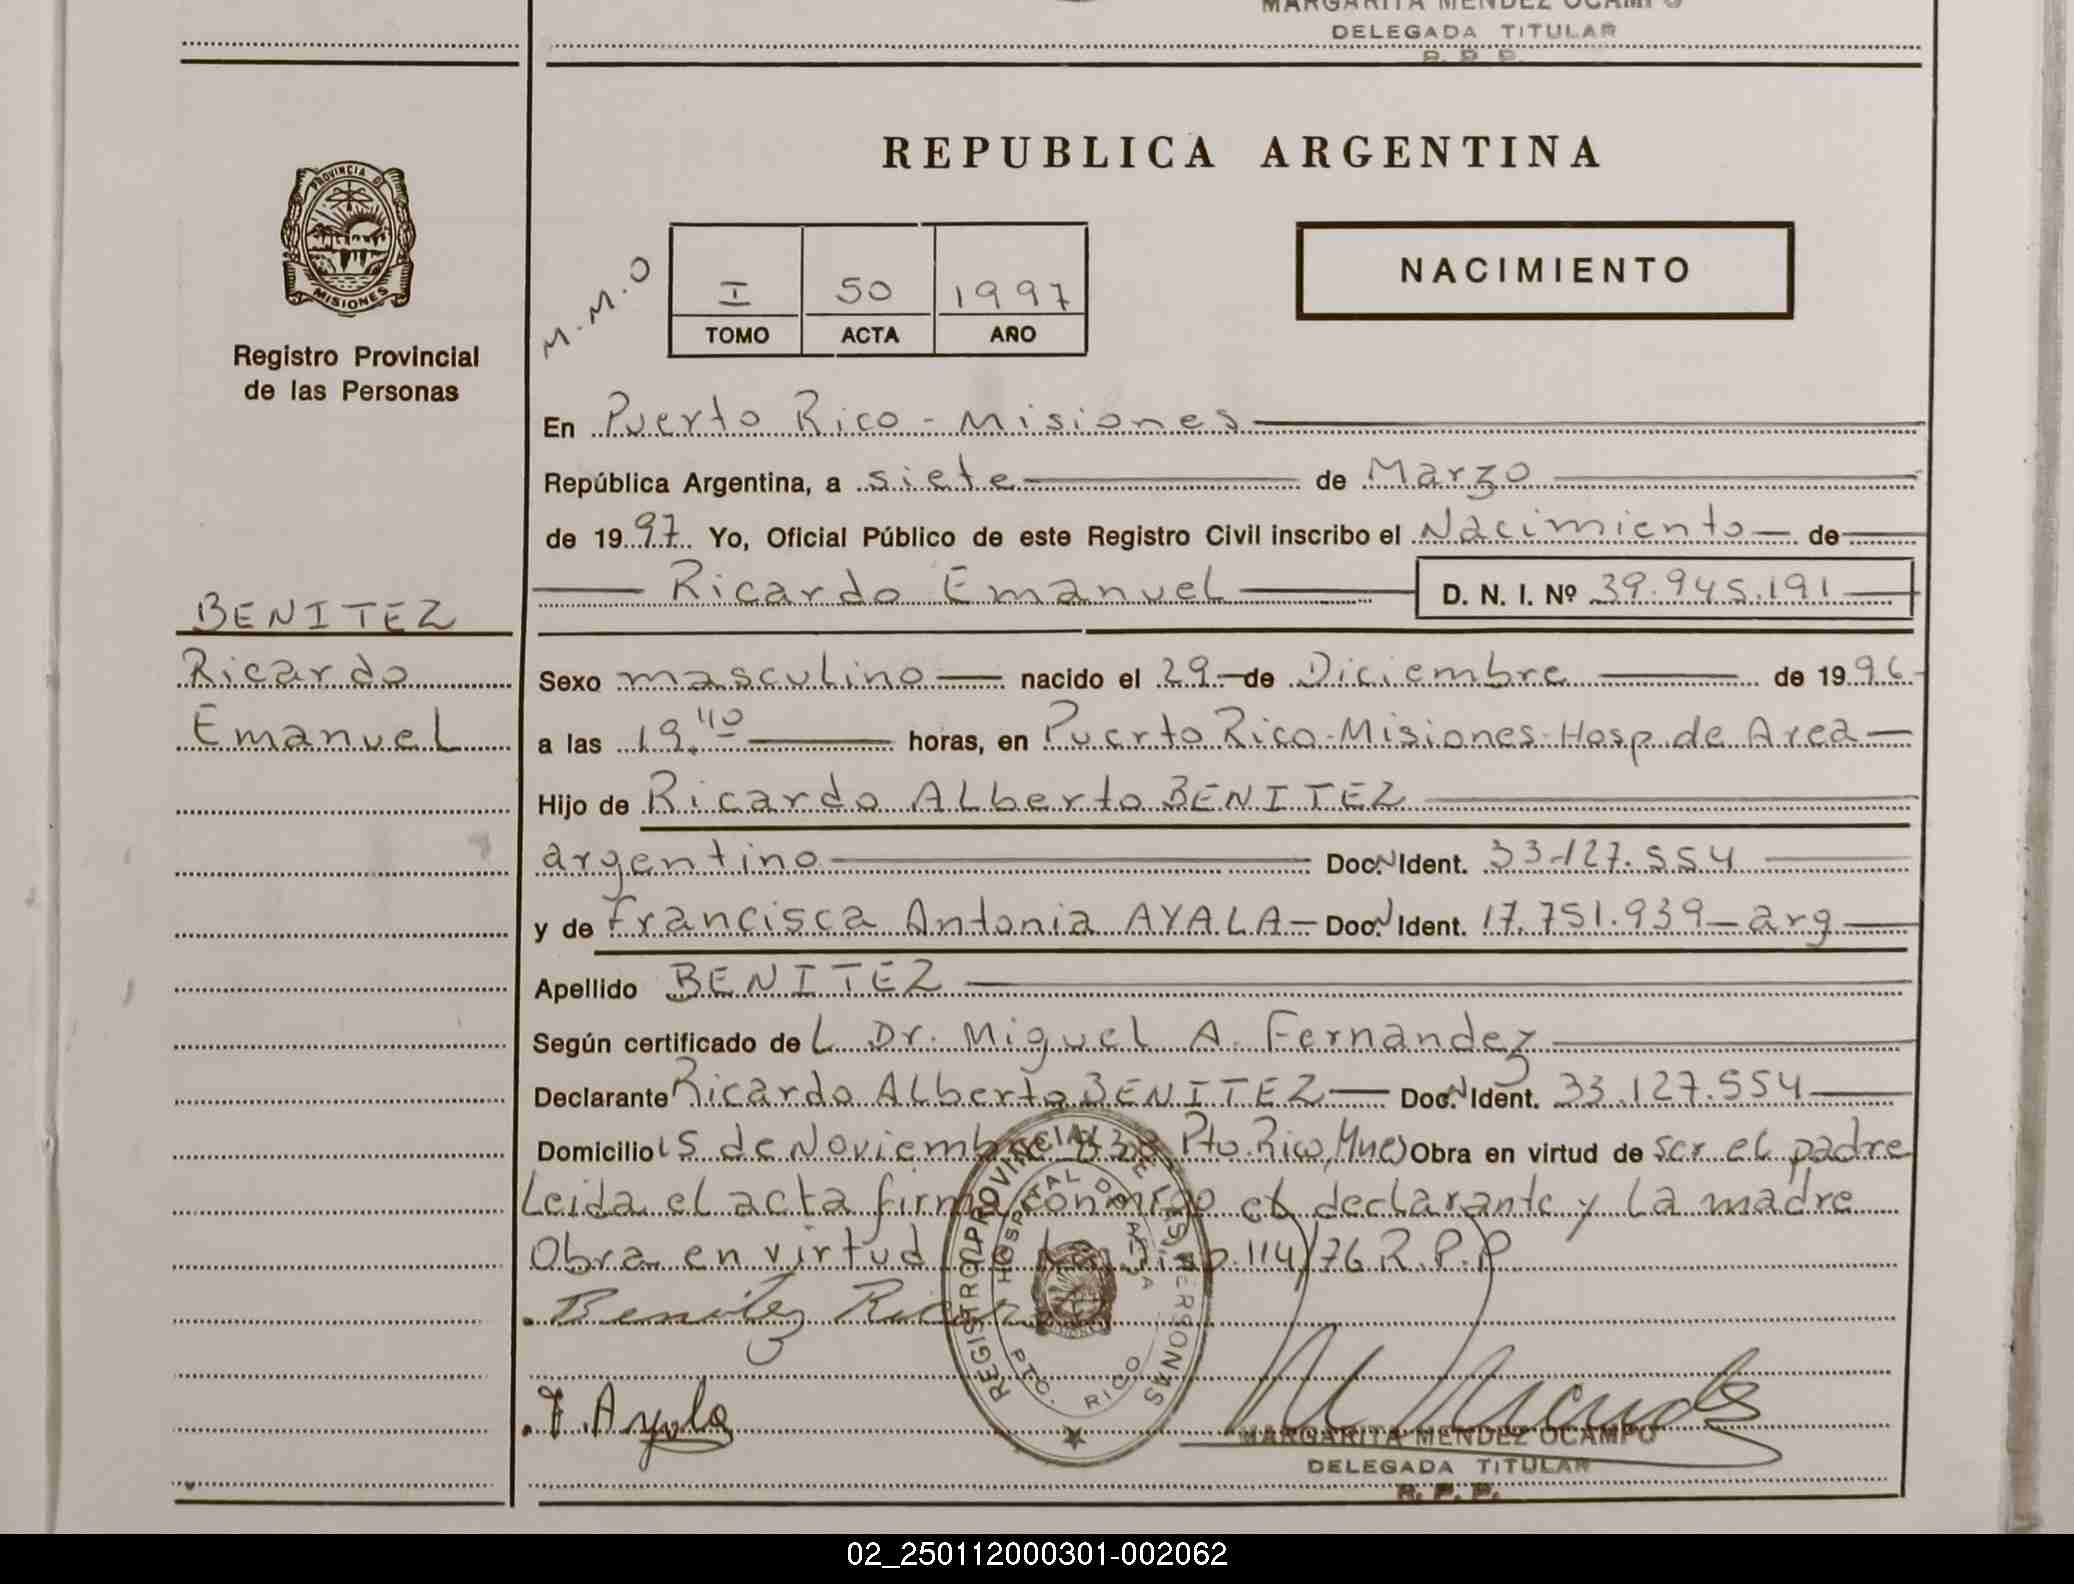 MARGARITA MENDEZ OCAMPO
DELEGADA TITULAR
R. P. P.
REPUBLICA ARGENTINA
PROVINCIA DE
MISIONES
Registro Provincial
de las Personas
M.M.O
I 50 1997
TOMO ACTA AÑO
NACIMIENTO
En Puerto Rico - Misiones
República Argentina, a siete de Marzo
de 1997 Yo, Oficial Público de este Registro Civil inscribo el Nacimiento de
Ricardo Emanuel D. N. I. Nº 39.945.191
BENITEZ
Ricardo
Emanuel
Sexo masculino nacido el 29 de Diciembre de 1996
a las 19.40 horas, en Puerto Rico-Misiones-Hosp.de Area
Hijo de Ricardo Alberto BENITEZ
argentino Doc. N Ident. 33.127.554
y de Francisca Antonia AYALA Doc. N Ident. 17.751.939 arg
Apellido BENITEZ
Según certificado del Dr. Miguel A. Fernandez
Declarante Ricardo Alberto BENITEZ Doc. N Ident. 33.127.554
Domicilio 15 de Noviembre Pto. Rico, Mnes Obra en virtud de ser el padre
Leida el acta firma conmigo el declarante y la madre
Obra en virtud de la Disp. 114/76 R.P.P
Benitez Ricardo
REGISTRO PROVINCIAL DE LAS PERSONAS
HOSPITAL DE AREA
PTO. RICO
F. Ayala
MARGARITA MENDEZ OCAMPO
DELEGADA TITULAR
R. P. P.
02_250112000301-002062